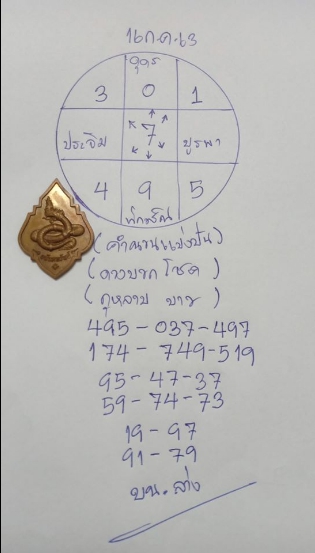 16 ก.ค. 63
อุดร
3 0 1
ประจิม 7 บูรพา
4 9 5
ทักษิณ
(คำนวนแบ่งปัน)
(ดวงบอกโชค)
(กุหลาบ ขาว)
495-037-497
174-749-519
95-47-37
59-74-73
19-97
91-79
บน.ล่าง